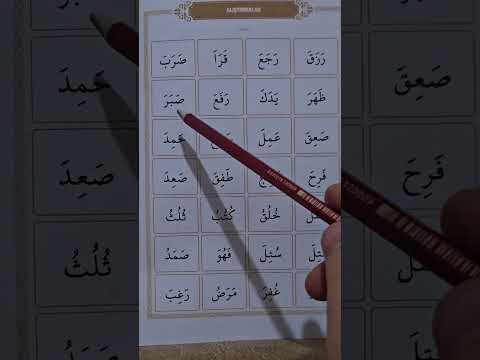 ALIŞTIRMALAR
رَزَقَ رَجَعَ قَرَاَ ضَرَبَ
ظَهَرَ يَدَكَ رَفَعَ صَبَرَ
صَعِقَ عَمِلَ حَمِدَ
فَرِحَ طَفِقَ صَعِدَ
خُلُقُ كُتُبُ ثُلُثُ
سُئِلَ فَهُوَ صَمَدُ
غُفِرَ مَرَضُ رَغِبَ